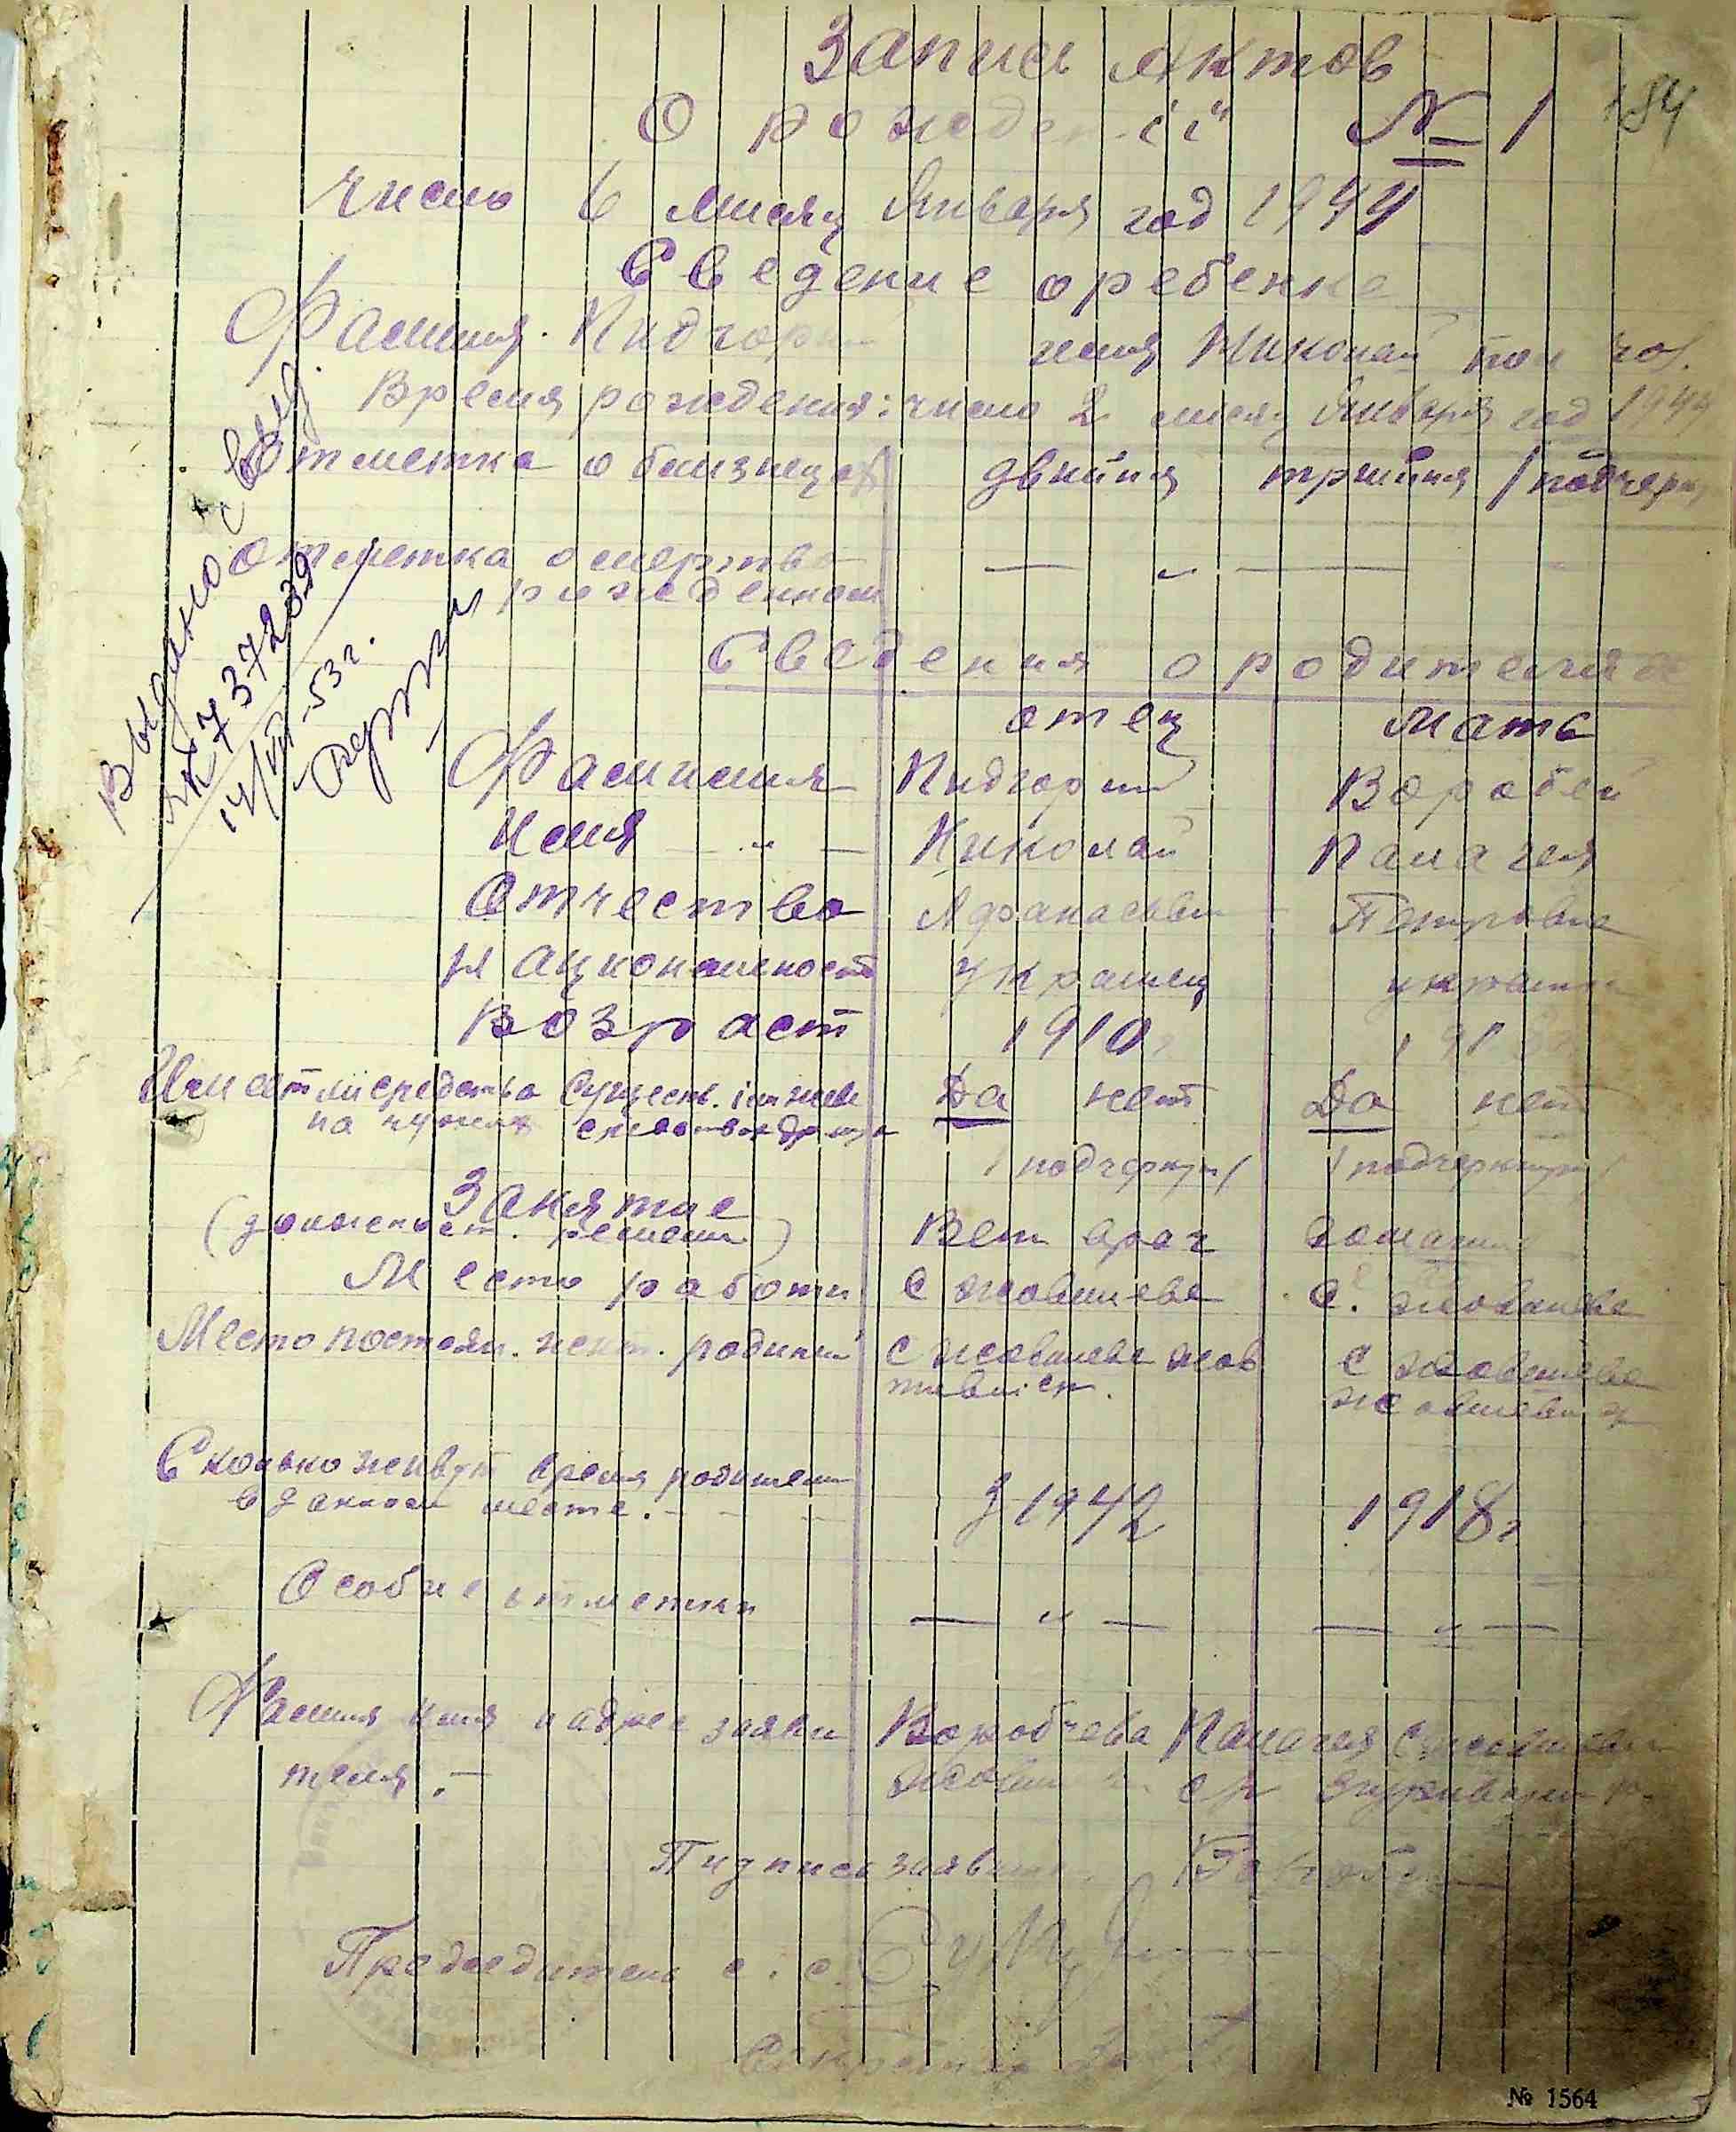 Запись Актов
184
О рожден-ii" № 1
число 6 мисяц Января год 1944
Сведение о ребенке
Фамилия. Пидгорн имя Николай пол чол.
Время рождения: число 2 мисяц Января год 1944
Отметка о близнецах двийня трийня /подчеркн
Отметка о мертво — „ —
рожденном
Выдано свид.
ЯК 737239
14/VII-53г.
Сведения о родителях
отец мать
Фамилия Пидгорний Воробей
Имя — „ — Николай Палагея
Отчество Афанасьев Петровна
Национальность Украинец украинка
Возраст 1910г 191
Имеет ли средства Существ. или живе Да нет Да нет
на чужих средствах
/подчеркнут/ /подчеркнут/
Занятие
(должност. ) Вет врач домашн
Место работи с Жовтнева с. Жовтнева
Место постоян. жит. родини с Жовтнева Жов с Жовтнева
Сколько живут время родители
в данном месте. - - - З 1942 1918г
Особие отметки — „ — — „ —
Фамилия имя и адрес заяви Воробйева Палагея с
теля. -
Пидпись заявит.
Председатель с. с.
Секретарь
№ 1564